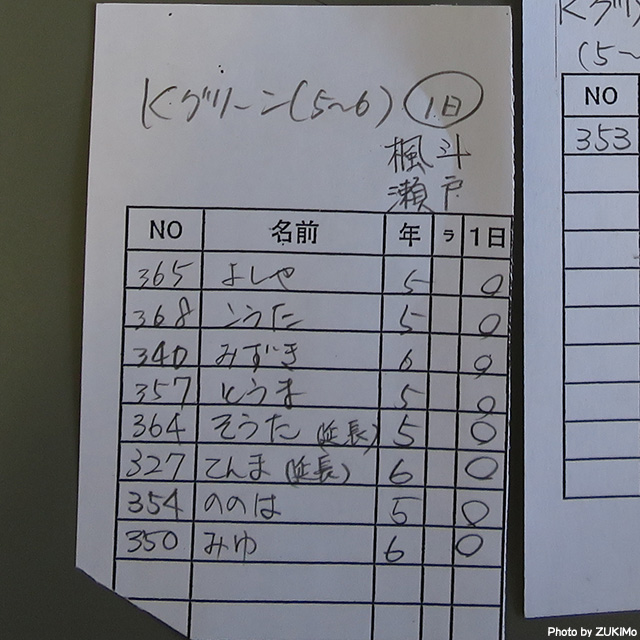 Kグリーン(5~6) 1日
楓斗
瀬戸
NO 名前 年 ラ 1日
365 よしや 5 0
368 こうた 5 0
340 みずき 6 0
357 とうま 5 0
364 そうた (延長) 5 0
327 てんま (延長) 6 0
354 ののは 5 0
350 みゆ 6 0
Kグリ
(5~
NO
353
Photo by ZUKIMo